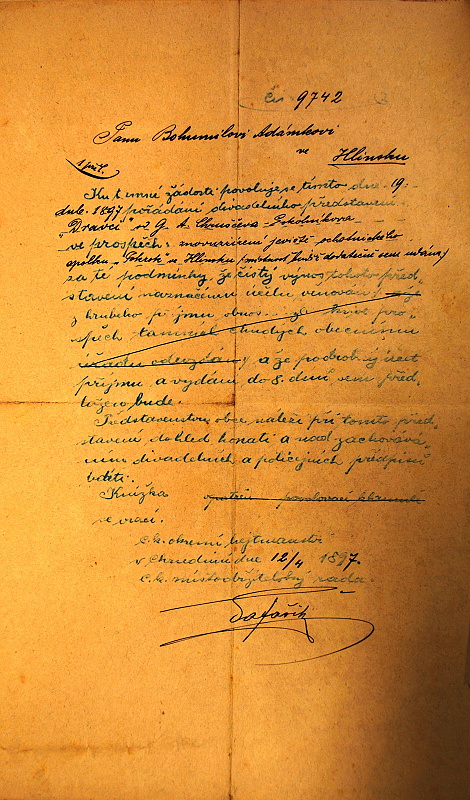 Čís 9742
Panu Bohumilovi Adámkovi
ve Hlinsku
1 příl.
Ku t. úmné žádosti povoluje se tímto dne 19.
dub. 1897 pořádání divadelního představení
"Dravci" od G. A.
ve prospěch: jeviště ochotnického
spolku "Pokrok" v Hlinsku
za té podmínky, že čistý výnos tohoto před
stavení naznačenému účelu věnován,
z hrubého příjmu obnos za pro-
spěch tamních chudých obecnímu
úřadu odevzdán, a že podrobný účet
příjmu a vydání do 8. dní sem před-
ložen bude.
Představenstvu obce náleží při tomto před-
stavení dohled konati a nad zachová-
ním divadelních a policejních předpisů
bdíti.
Knížka
se vrací.
C.k. okresní hejtmanství
v Chrudimi dne 12/4 1897.
C.k. místodržitelský rada.
Šafařík